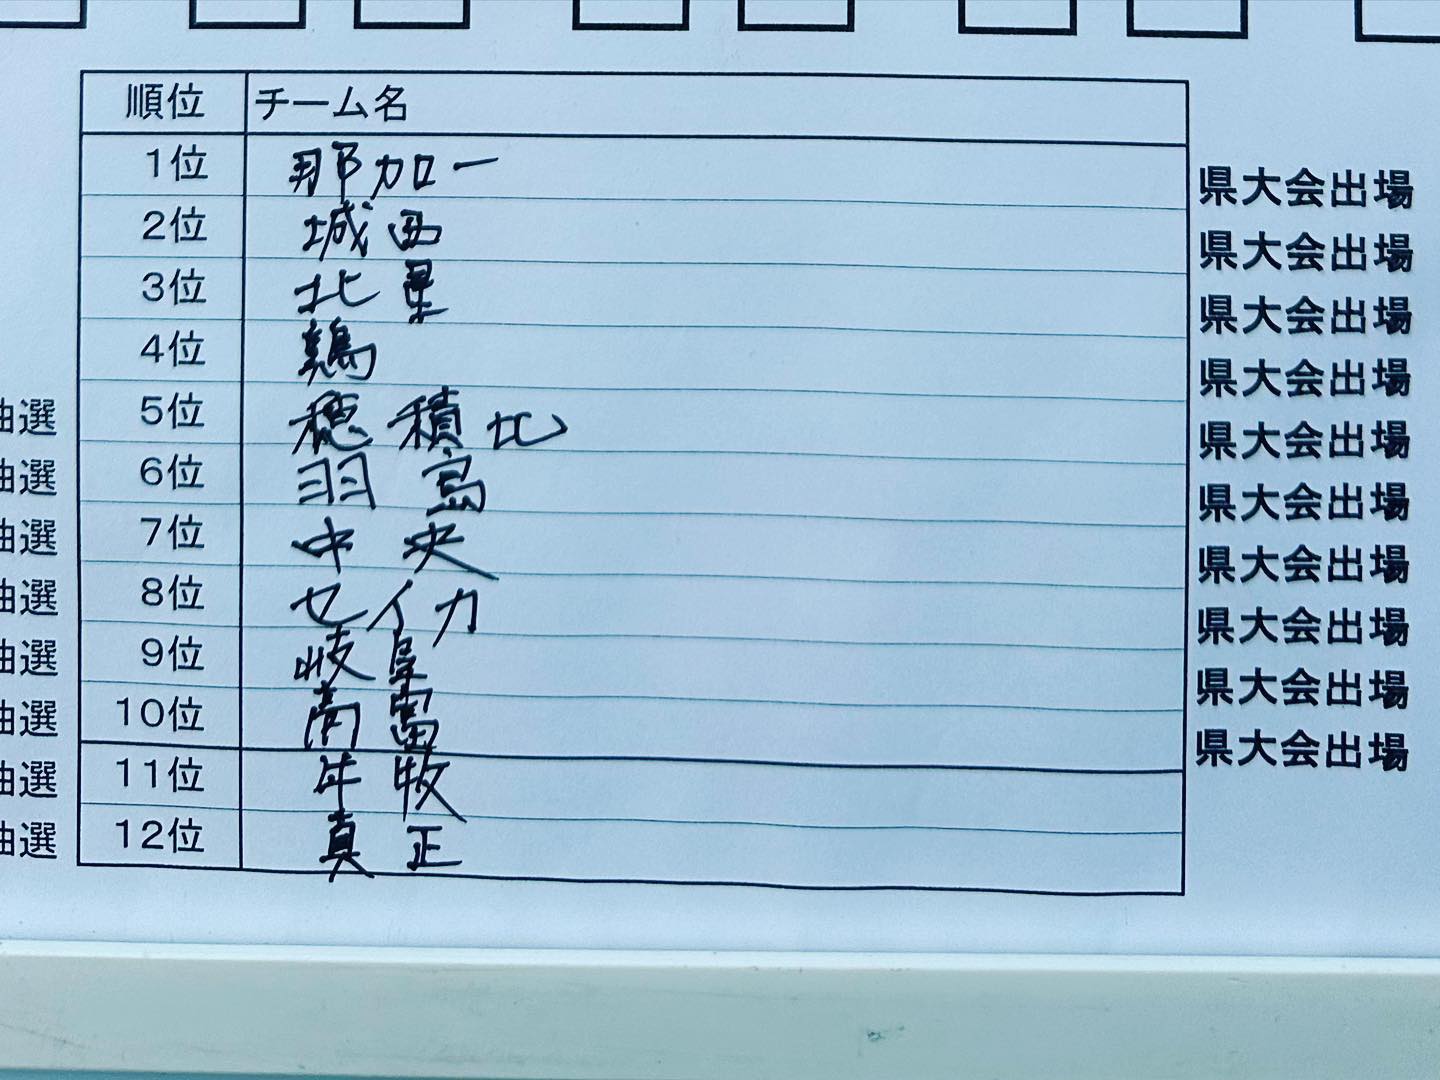 順位 チーム名
1位 那加一 県大会出場
2位 城西 県大会出場
3位 北星 県大会出場
4位 鶉 県大会出場
抽選 5位 穂積北 県大会出場
抽選 6位 羽島 県大会出場
抽選 7位 中央 県大会出場
抽選 8位 セイカ 県大会出場
抽選 9位 岐阜 県大会出場
抽選 10位 高富 県大会出場
抽選 11位 牛牧
抽選 12位 真正